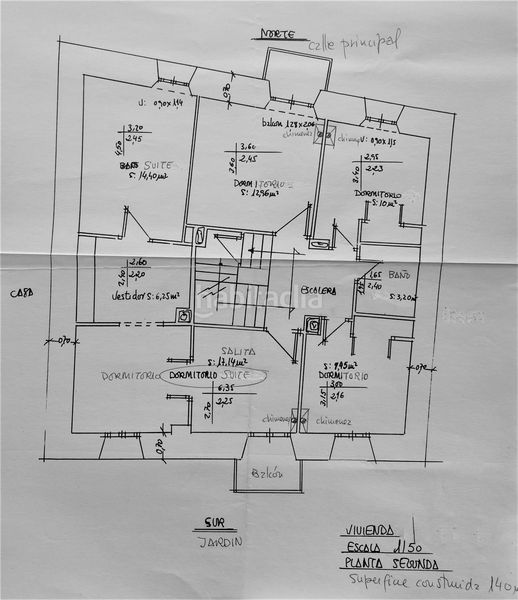 NORTE
calle principal
0,70
V: 090x114
balcon 128x206
chimenez
V: 090x115
3,20
2,45
4,50
BAÑO SUITE
S: 14,40 m²
3,60
2,45
3,60
DORMITORIO
S: 12,96 m²
2,95
2,23
3,40
DORMITORIO
S: 10 m²
CASA
2,60
2,20
2,40
Vestidor S: 6,25 m²
habitaclia
ESCALERA
1,65
2,40
BAÑO
S: 3,20 m²
0,70
0,70
SALITA
S: 17,14 m²
DORMITORIO
DORMITORIO SUITE
6,35
2,25
2,70
S: 9,45 m²
DORMITORIO
3,00
2,16
3,15
chimenez
chimenez
0,70
Balcón
SUR
JARDIN
VIVIENDA
ESCALA 1/50
PLANTA SEGUNDA
Superficie construida 140